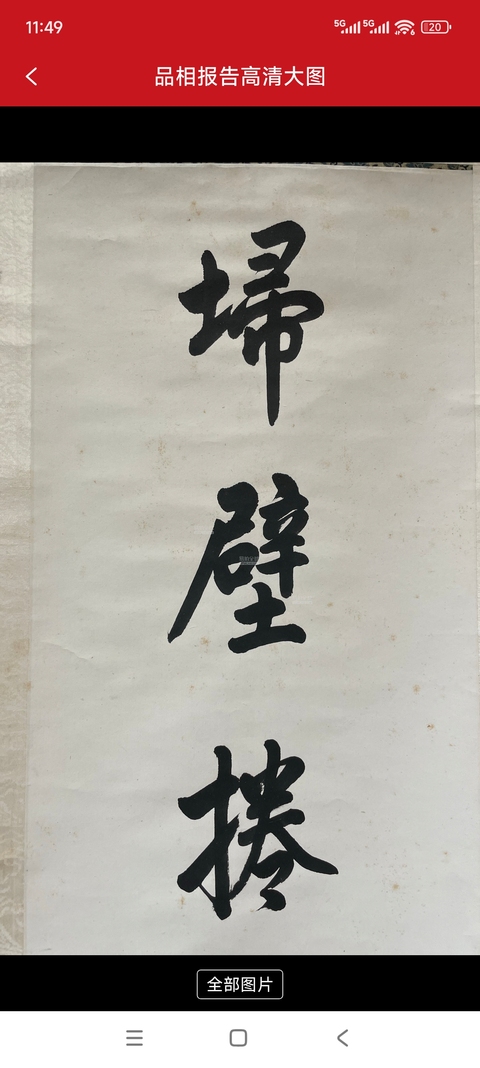 11:49
5G 5G 6 20
品相报告高清大图
埽
壁
捲
全部图片